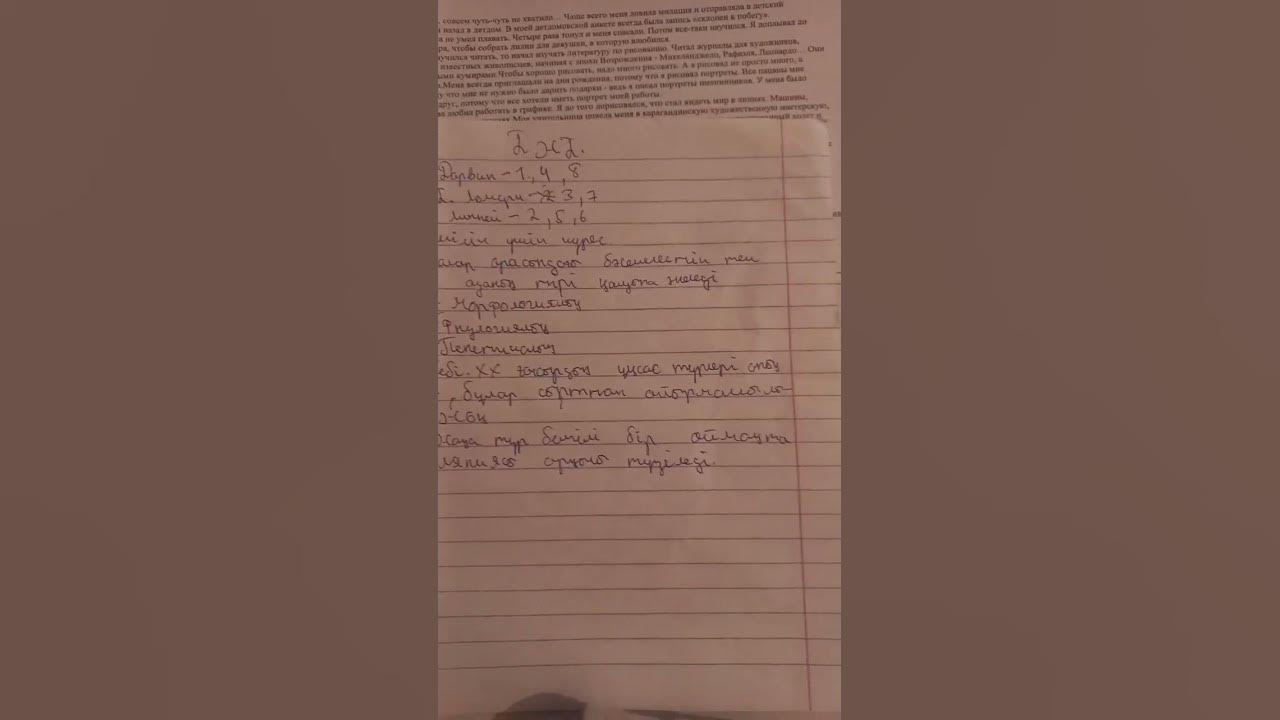 , совсем чуть-чуть не хватило... Чаще всего меня ловила милиция и отправляла в детский
назад в детдом. В моей детдомовской анкете всегда была запись «склонен к побегу».
не умел плавать. Четыре раза тонул и меня спасали. Потом все-таки научился. Я доплывал до
ра, чтобы собрать лилии для девушки, в которую влюбился.
учился читать, то начал изучать литературу по рисованию. Читал журналы для художников,
известных живописцев, начиная с эпохи Возрождения - Микеланджело, Рафаэля, Леонардо... Они
ыми кумирами. Чтобы хорошо рисовать, надо много рисовать. А я рисовал не просто много, а
.Меня всегда приглашали на дни рождения, потому что я рисовал портреты. Все пацаны мне
у что мне не нужно было дарить подарки - ведь я писал портреты именинников. У меня было
друг, потому что все хотели иметь портрет моей работы.
ва любил работать в графике. Я до того дорисовался, что стал видеть мир в линиях. Машины,
Моя учительница повела меня в карагандинскую художественную мастерскую,
ТЖБ.
Дарвин - 1, 4, 8
Ламарк - 3, 7
Линней - 2, 5, 6
үшін күрес
алар арасындағы бәсекелестік пен
тірі қалуға
Морфологиялық
Физиологиялық
Генетикалық
ебі. ХХ ғасырдың ұқсас түрлері
, бұлар сырттан
Жаңа түр белгілі бір аймақта
ляция арқылы түзіледі.